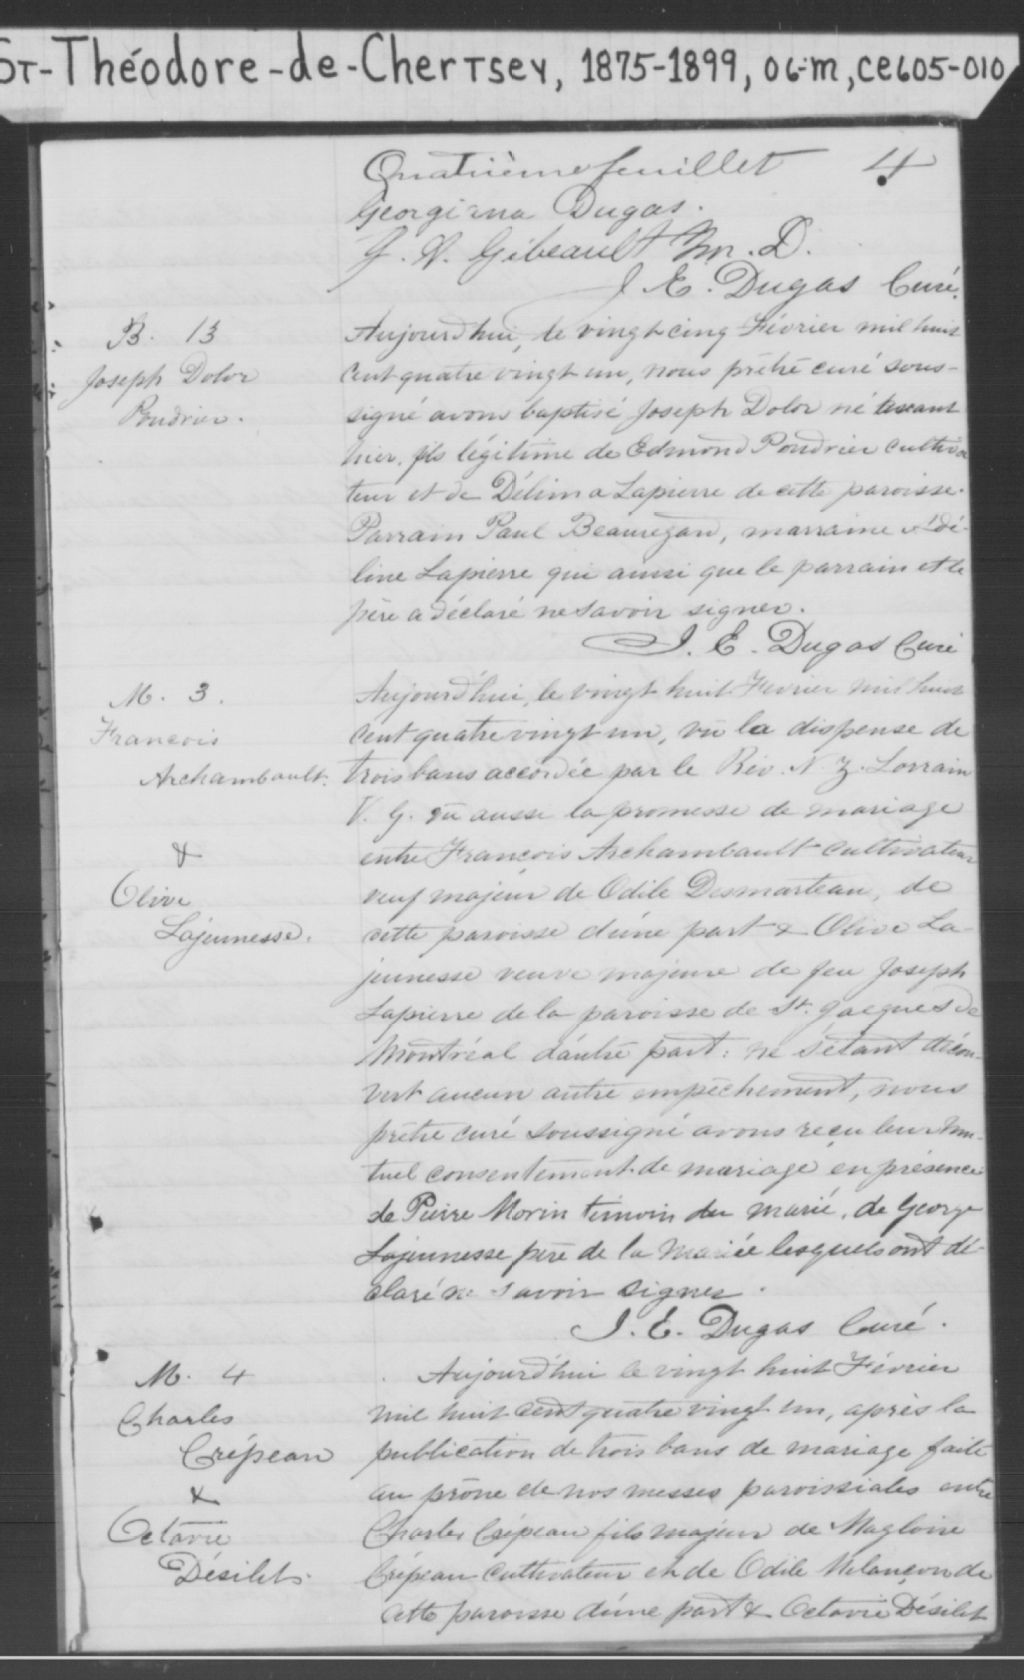 St-Théodore-de-Chertsey, 1875-1899, 06-m, CE605-010
Quatrième feuillet 4
Georgiana Dugas.
J. A. Gibeault M. D.
J. E. Dugas Curé.
B. 13
Joseph Dolor
Poudrier.
Aujourd'hui, le vingt cinq Février mil huit
cent quatre vingt un, nous prêtre curé sous-
signé avons baptisé Joseph Dolor né avant
hier fils légitime de Edmond Poudrier cultiva
teur et de Délima Lapierre de cette paroisse.
Parrain Paul Beauregard, marraine Adé-
line Lapierre qui ainsi que le parrain et le
père a déclaré ne savoir signer.
J. E. Dugas Curé
M. 3.
Francois
Archambault.
&
Olive
Lajeunesse.
Aujourd'hui, le vingt huit Fevrier mil huit
cent quatre vingt un, vu la dispense de
trois bans accordée par le Rév. N. Z. Lorrain
V. G. vu aussi la promesse de mariage
entre Francois Archambault cultivateur
veuf majeur de Odile Desmarteau, de
cette paroisse d'une part & Olive La-
jeunesse veuve majeure de feu Joseph
Lapierre de la paroisse de St. Jacques de
Montréal d'autre part: ne s'étant décou-
vert aucun autre empêchement, nous
prêtre curé soussigné avons reçu leur mu-
tuel consentement de mariage en présence
de Pierre Morin temoin du marié, de George
Lajeunesse père de la mariée lesquels ont dé-
claré ne savoir signer.
J. E. Dugas Curé.
M. 4
Charles
Crépeau
&
Octavie
Désilets.
Aujourd'hui le vingt huit Février
mil huit cent quatre vingt un, après la
publication de trois bans de mariage faite
au prône de nos messes paroissiales entre
Charles Crépeau fils majeur de Magloire
Crépeau cultivateur et de Odile Melançon de
cette paroisse d'une part & Octavie Désilet